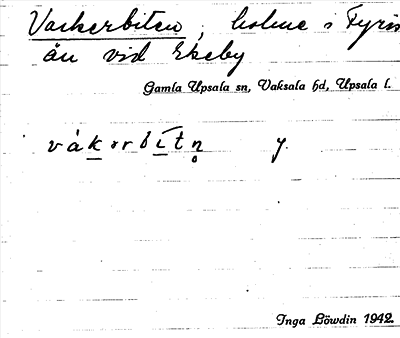 Vackerbiten, holme i Fyris
ån vid Ekeby
Gamla Upsala sn, Vaksala hd, Upsala l.
våkərbītn̥ y.
Inga Löwdin 1942.